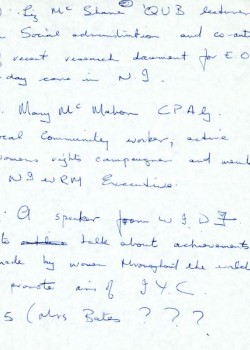 . Liz Mc Shane QUB lecture
Social administration and co-aut
recent research document for E.O
day care in N I.
. Mary Mc Mahon CPAg.
ocal Community worker, active
womens rights campaigner and mem
N I WRM Executive.
. A speaker from W I D F
to talk about achievements
made by women throughout the world
promote aims of I Y C.
5 (Mrs Bates ? ? ?